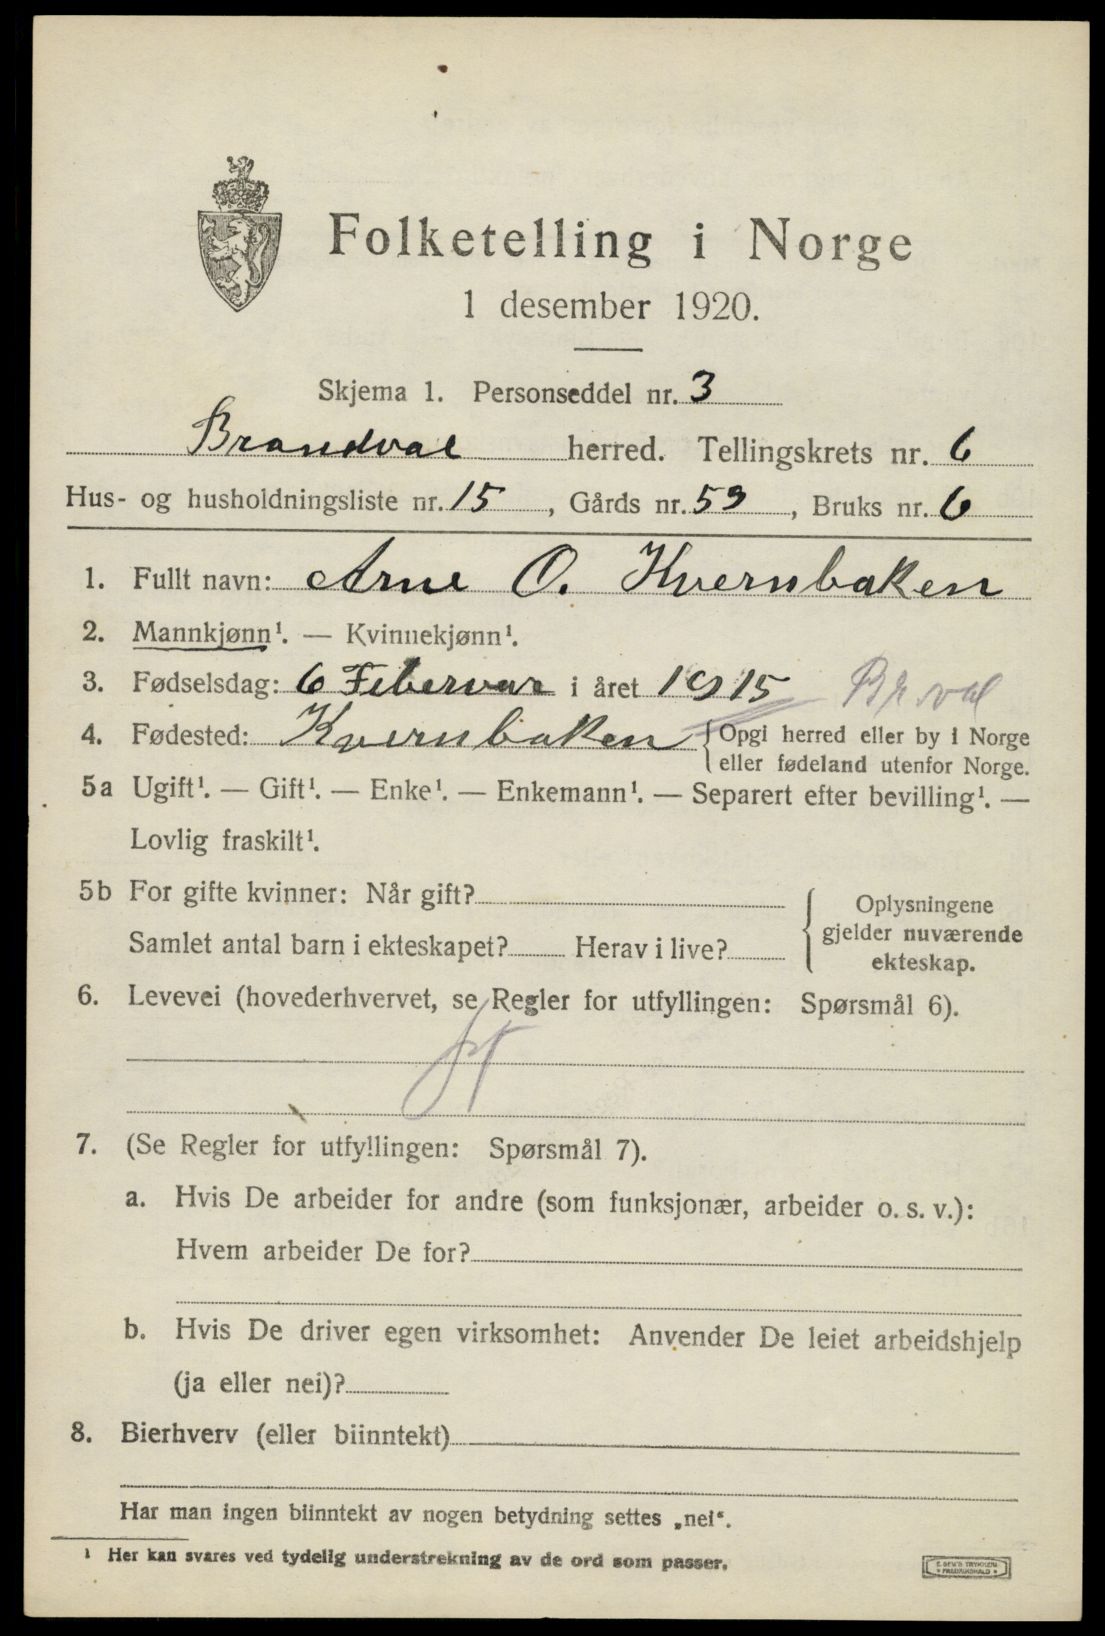 Folketelling i Norge
1 desember 1920.
Skjema 1. Personseddel nr. 3
Brandval herred. Tellingskrets nr. 6
Hus- og husholdningsliste nr. 15, Gårds nr. 59, Bruks nr. 6
1. Fullt navn: Arne O. Kvernbaken
2. Mannkjønn¹. — Kvinnekjønn¹.
3. Fødselsdag: 6 Febervar i året 1915 Br.val
4. Fødested: Kvernbaken {Opgi herred eller by i Norge
eller fødeland utenfor Norge.
5a Ugift¹. — Gift¹. — Enke¹. — Enkemann¹. — Separert efter bevilling¹. —
Lovlig fraskilt¹.
5b For gifte kvinner: Når gift?
Samlet antal barn i ekteskapet? Herav i live?
Oplysningene
gjelder nuværende
ekteskap.
6. Levevei (hovederhvervet, se Regler for utfyllingen: Spørsmål 6).
7. (Se Regler for utfyllingen: Spørsmål 7).
a. Hvis De arbeider for andre (som funksjonær, arbeider o. s. v.):
Hvem arbeider De for?
b. Hvis De driver egen virksomhet: Anvender De leiet arbeidshjelp
(ja eller nei)?
8. Bierhverv (eller biinntekt)
Har man ingen biinntekt av nogen betydning settes „nei“.
¹ Her kan svares ved tydelig understrekning av de ord som passer.
E. SEM'S TRYKKERI
* FREDRIKSHALD *